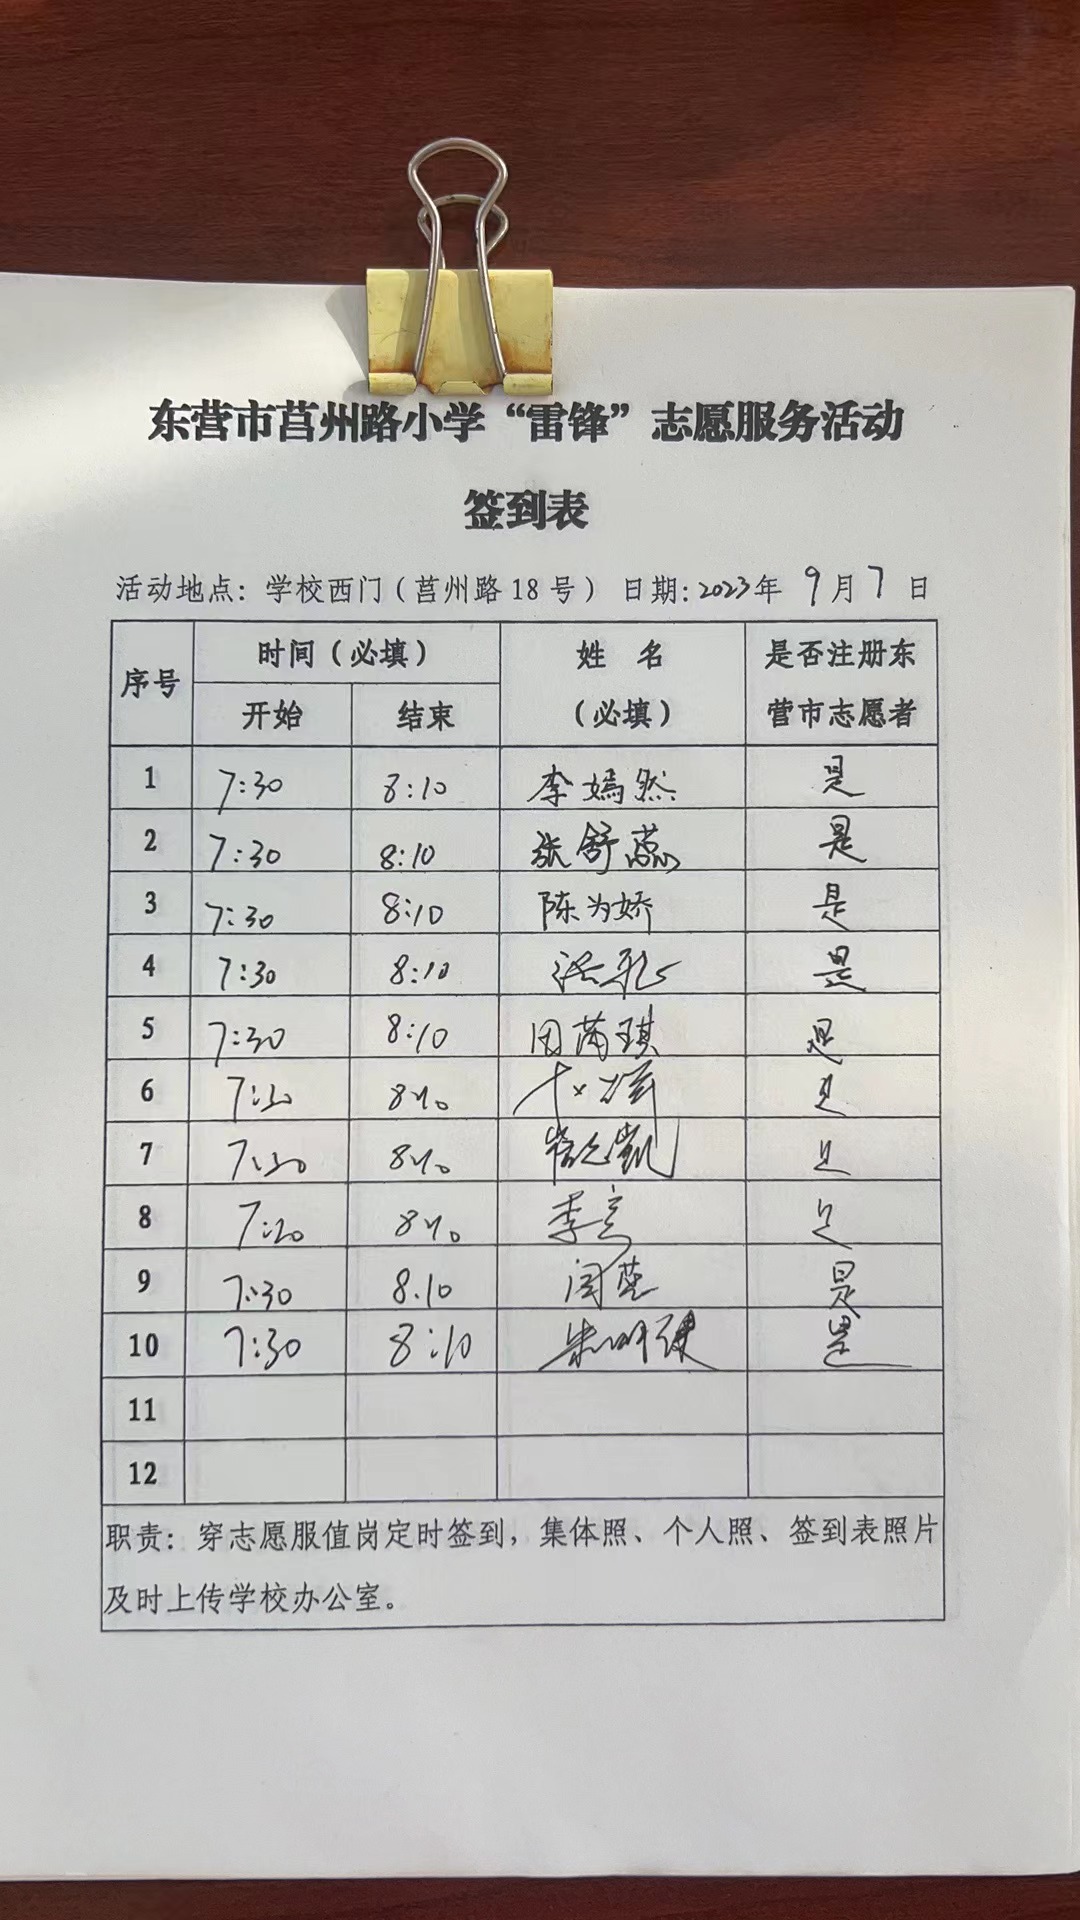 东营市莒州路小学“雷锋”志愿服务活动
签到表
活动地点：学校西门（莒州路18号） 日期：2023年 9月7日
序号 时间（必填） 姓 名（必填） 是否注册东营市志愿者
开始 结束
1 7:30 8:10 李嫣然 是
2 7:30 8:10 张舒蕊 是
3 7:30 8:10 陈为娇 是
4 7:30 8:10 是
5 7:30 8:10 田蒲琪 是
6 7:30 8:10 是
7 7:30 8:10 是
8 7:20 8:10 李亮 是
9 7:30 8.10 闫莹 是
10 7:30 8:10 是
11
12
职责：穿志愿服值岗定时签到，集体照、个人照、签到表照片
及时上传学校办公室。